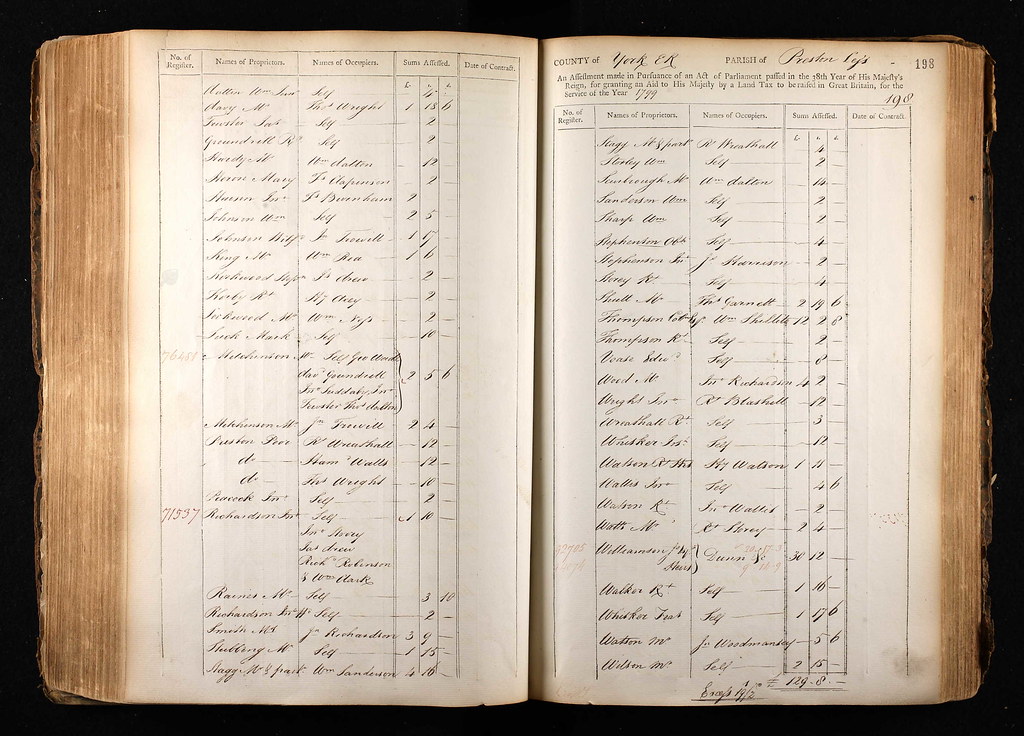 No. of Register. Names of Proprietors. Names of Occupiers. Sums Assessed. Date of Contract.
£. s. d.
Dalton Wm Junr Self 4
Davy Mr Thos Wright 1 18 6
Fewster Jas Self 2
Groundrell Rd Self 2
Hardy Mr Wm dalton 12
Heron Mary 2
Jno Burnham 2
Johnson Wm Self 2 5
Johnson Jn Frowell 1 7
King Mr Wm Rea 1 6
Kirkwood Js drew 2
Kirby Rt Hy 2
Lockwood Mr Wm 2
Mark Self 10
76488 Mitchinson Wm Self Geo Ward
Davd Grundrell 2 5 6
Jno Suddaby Jnr
Fewster Thos dalton
Mitchinson Mr Jn Frowell 2 4
Preston Poor Rt Wreathall 12
do Watts 12
do Thos Wright 10
Peacock Jno Self 2
71537 Richardson Jno Self 1 10
Jno Storey
Jas drew
Richd Robinson
& Wm Clark
Raines Mr Self 3 10
Richardson Self 2
Smith Mr Jn Richardson 3 9
Stubbing Mr Self 1 15
Stagg Mr & part Wm Sanderson 4 16
COUNTY of York ER PARISH of Preston 198
An Assessment made in Pursuance of an Act of Parliament passed in the 38th Year of His Majesty's
Reign, for granting an Aid to His Majesty by a Land Tax to be raised in Great Britain, for the
Service of the Year 1799
198
No. of Register. Names of Proprietors. Names of Occupiers. Sums Assessed. Date of Contract.
£. s. d.
Stagg Mr & part Rt Wreathall 4
Wm Self 2
Scurbrough Mr Wm dalton 14
Sanderson Wm Self 2
Sharp Wm Self 2
Stephenson Self 4
Stephenson Jno Js Harrison 2
Storey Rt Self 4
Mr Thos Garnett 2 19 6
Thompson Wm 12 2 8
Thompson Rt Self 2
Vease Edwd Self 8
Wood Mr Jno Richardson 4 2
Wright Jno Rt Blashell 12
Wreathall Rt Self 3
Whisker Jno Self 12
Watson Hy Watson 1 11
Wallis Jno Self 4 6
Watson Rt Jno Wallis 2
Watts Mr Rt Storey 2 4
Williamson 30 12
Walker Rt Self 1 16
Whisker Fras Self 1 17 6
Watson Mr Jn Woodmansey 5 6
Wilson Mr Self 2 15
£ 129 8
Excess 19/2